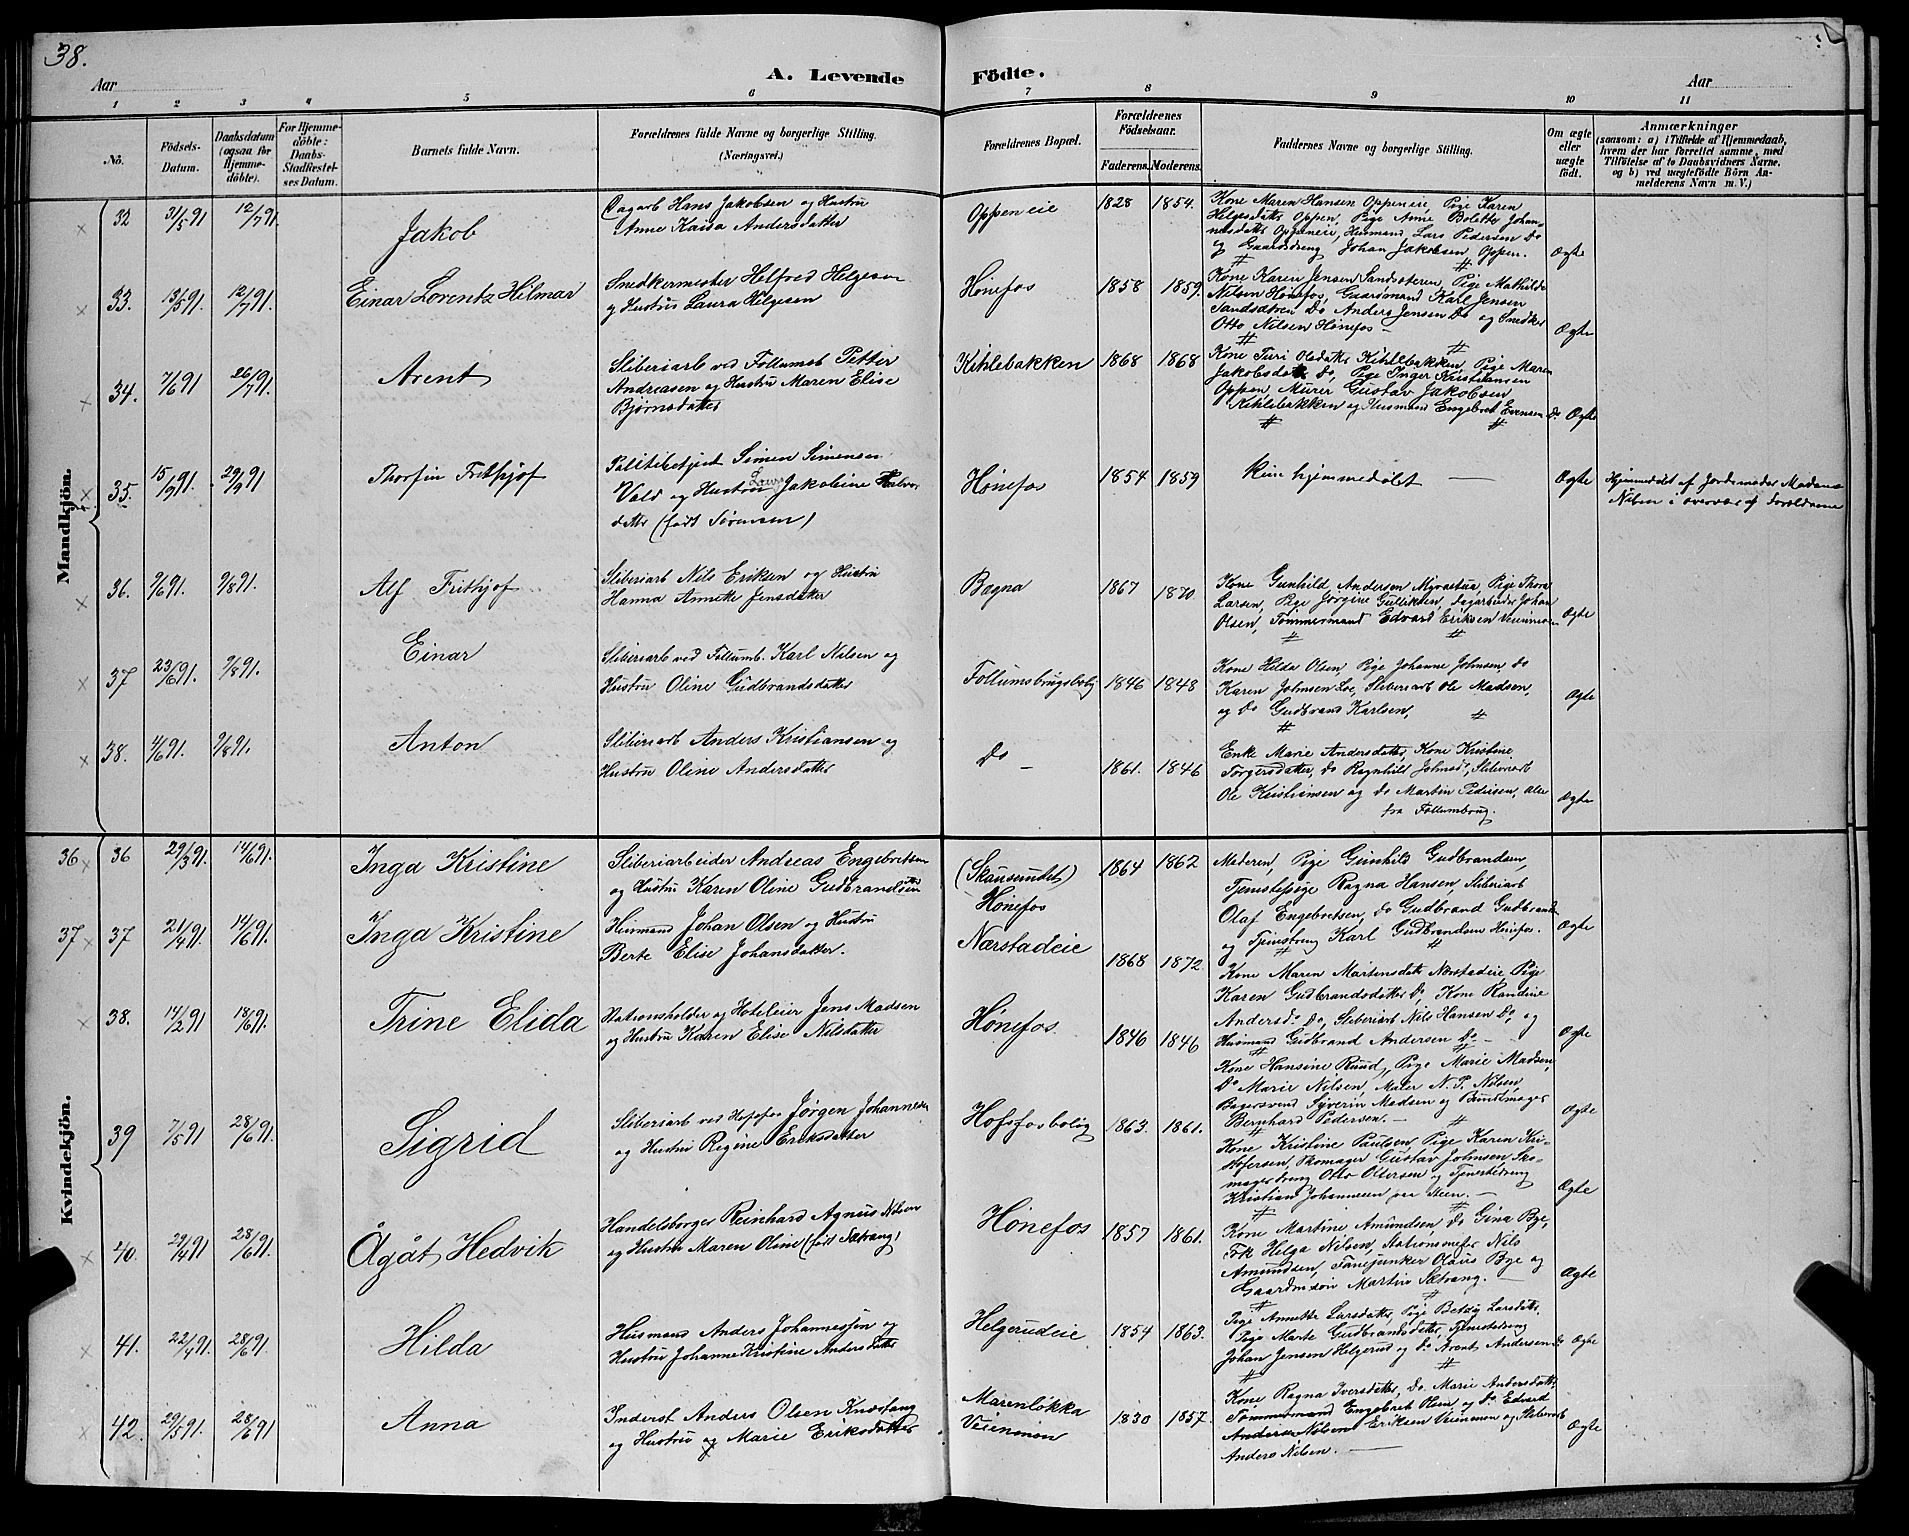 38.
A. Levende Födte.
Aar
Aar
1 2 3 4 5 6 7 8 9 10 11
No.
Födsels-Datum.
Daabsdatum (ogsaa for Hjemme-döbte).
For Hjemme-döbte: Daabs-Stadfæstel-ses Datum.
Barnets fulde Navn.
Forældrenes fulde Navne og borgerlige Stilling.
(Næringsvei.)
Forældrenes Bopæl.
Forældrenes Födselsaar.
Faderens. Moderens.
Faddernes Navne og borgerlige Stilling.
Om ægte eller uægte födt.
Anmærkninger
(saasom: a) i Tilfælde af Hjemmedaab,
hvem der har forrettet samme, med
Tilföielse af to Daabsvidners Navne.
og b) ved uægtefödte Börn An-
melderens Navn m. V.)
Mandkjön.
32 31/5 91 12/7 91. Jakob
Dagarb Hans Jakobsen og Hustru
Anne Kaisa Andersdatter
Oppeneie 1828 1854.
Kone Maren Hansen Oppeneie, Pige Karen
Helgesdatter Oppen, Pige Anne Bolette Johan-
nesdatter Oppeneie, Husmand Lars Pedersen Do
og Gaardsdreng Johan Jakobsen Oppen. Ægte
33. 13/5 91. 12/7 91. Einar Lorentz Hilmar
Snedkermester Helfred Helgesen
og Hustru Laura Helgesen
Hönefos 1858 1859.
Kone Karen Jensen Sandsæteren, Pige Mathilde
Nilsen Hönefos, Gaardmand Karl Jensen
Sandsæteren Do Anders Jensen Do og Snedker
Otto Nilsen Hönefos - Ægte
34. 7/6 91 26/7 91. Arent
Sliberiarb ved Follumsb Petter
Andreasen og Hustru Maren Elise
Björnsdatter
Kihlebakken 1868 1868
Kone Turi Olsdatter Kihlebakken, Pige Maren
Jakobsdatter Do, Pige Inger Kristiansen
Oppen, Murer Gustav Jakobsen
Kihlebakken og Husmand Engebret Evensen Do Ægte
35. 15/9 91. 29/9 91 Thorfin Frithjof
Politibetjent Simen Simensen
Vald og Hustru Laura Jakobine Halvor
datter (født Sørensen)
Hönefos 1854 1859 kun hjemmedøbt — Ægte
Hjemmedøbt af Jordemoder Madame
Nilsen i overvær af Forældrene
36. 9/6 91. 9/8 91. Alf Frithjof
Sliberiarb Nils Eriksen og Hustru
Hanna Annette Jensdatter
Bagna 1867 1870
Kone Gunhild Andersen Myrastua, Pige Thora
Larsen, Pige Jörgine Gulliksen, Dagarbeider Johan
Olsen, Tömmermand Edvard Eriksen Veienmoen Ægte
37 23/6 91. 9/8 91. Einar
Sliberiarb ved Follumb. Karl Nilsen og
Hustru Oline Gudbrandsdatter
Follumsbrugsbolig 1846 1848
Kone Helda Olsen, Pige Johanne Johnsen Do
Karen Johnsen Loe, Sliberiarb Ole Madsen,
og Do Gudbrand Karlsen, Ægte
38. 4/6 91. 9/8 91. Anton
Sliberiarb Anders Kristiansen og
Hustru Oline Andersdatter
Do - 1861. 1846
Enke Marie Andersdatter, Kone Kristine
Torgersdatter, Do Ragnhild Johnsd, Sliberiarb
Ole Kristiansen og Do Martin Pedersen, alle
fra Follumbrug. Ægte
Kvindekjön.
36 36 29/3 91. 14/6 91. Inga Kristine
Sliberiarbeider Andreas Engebretsen
og Hustru Karen Oline Gudbrandsen
(Skausundet)
Hönefos 1864 1862
Moderen, Pige Gunhild Gudbrandsen,
Tjenstepige Ragna Hansen, Sliberiarb
Olaf Engebretsen, Do Gudbrand Gudbrands
og Tjenstdreng Karl Gudbrandsen Hönefos. Ægte
37 37 21/4 91. 14/6 91. Inga Kristine
Husmand Johan Olsen og Hustru
Berte Elise Johansdatter.
Nærstadeie 1868 1872.
Kone Maren Martinsdatter Nærstadeie Pige
Karen Gudbrandsdatter Do, Kone Randine
Andersd. Do, Sliberiarb Nils Hansen Do og
Husmand Gudbrand Andersen Do - Ægte
38. 14/2 91 18/6 91. Trine Elida
Stationsholder og Hoteleier Jens Madsen
og Hustru Karen Elise Nilsdatter
Hönefos 1846 1846
Kone Hansine Ruud, Pige Marie Madsen,
Do Marie Nilsen, Maler N. P. Nilsen,
Bagersvend Syverin Madsen og Buntmager
Bernhard Pedersen. - Ægte
39 7/5 91 28/6 91. Sigrid
Sliberiarb ved Hofsfos Jörgen Johannesen
og Hustru Regine Eriksdatter
Hofsfosbolig 1863. 1861.
Kone Kristine Paulsen, Pige Karen Kri-
stofersen, Skomager Gustav Johnsen Sko-
magerdreng Otto Ottersen og Tjenstedreng
Kristian Johannesen paa Steen. - Ægte
40. 29/4 91 28/6 91. Ågåt Hedvik
Handelsborger Reinhard Agnus Nilsen
og Hustru Maren Oline (født Sætrang)
Hönefos 1857 1861.
Kone Martine Amundsen, Do Gina Bye,
Frk Helga Nilsen, Stationsmester Nils
Amundsen, Fanejunker Olaus Bye og
Gaardmsön Martin Sætrang. — Ægte
41. 22/4 91. 28/6 91. Hilda
Husmand Anders Johannessen og
Hustru Johanne Kristine Andersdatter
Helgerudeie 1854 1863.
Pige Annette Larsdatter, Pige Betsy Larsdatter,
Pige Marte Gudbrandsdatter, Tjenstedreng
Johan Jensen Helgerud og Do Arent Andersen Do Ægte
42. 29/5 91. 28/6 91 Anna
Inderst Anders Olsen Knærtang
og Hustru og Marie Eriksdatter
Marenlökka
Veienmoen 1830 1857.
Kone Ragna Iversdatter, Do. Marie Andersdatter,
Tömmermand Engebret Olsen og Do Edvard
Eriksen Veienmoen og Sliberiarb
Anders Nilsen. — Ægte